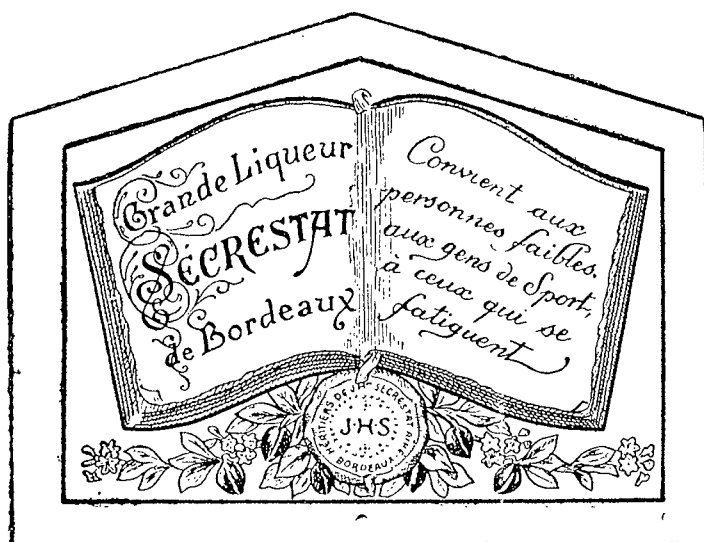 Grande Liqueur
SÉCRESTAT
de Bordeaux
Convient aux
personnes faibles,
aux gens de Sport,
à ceux qui se
fatiguent
DE J.H. SÉCRESTAT AINÉ
J·H·S
BORDEAUX